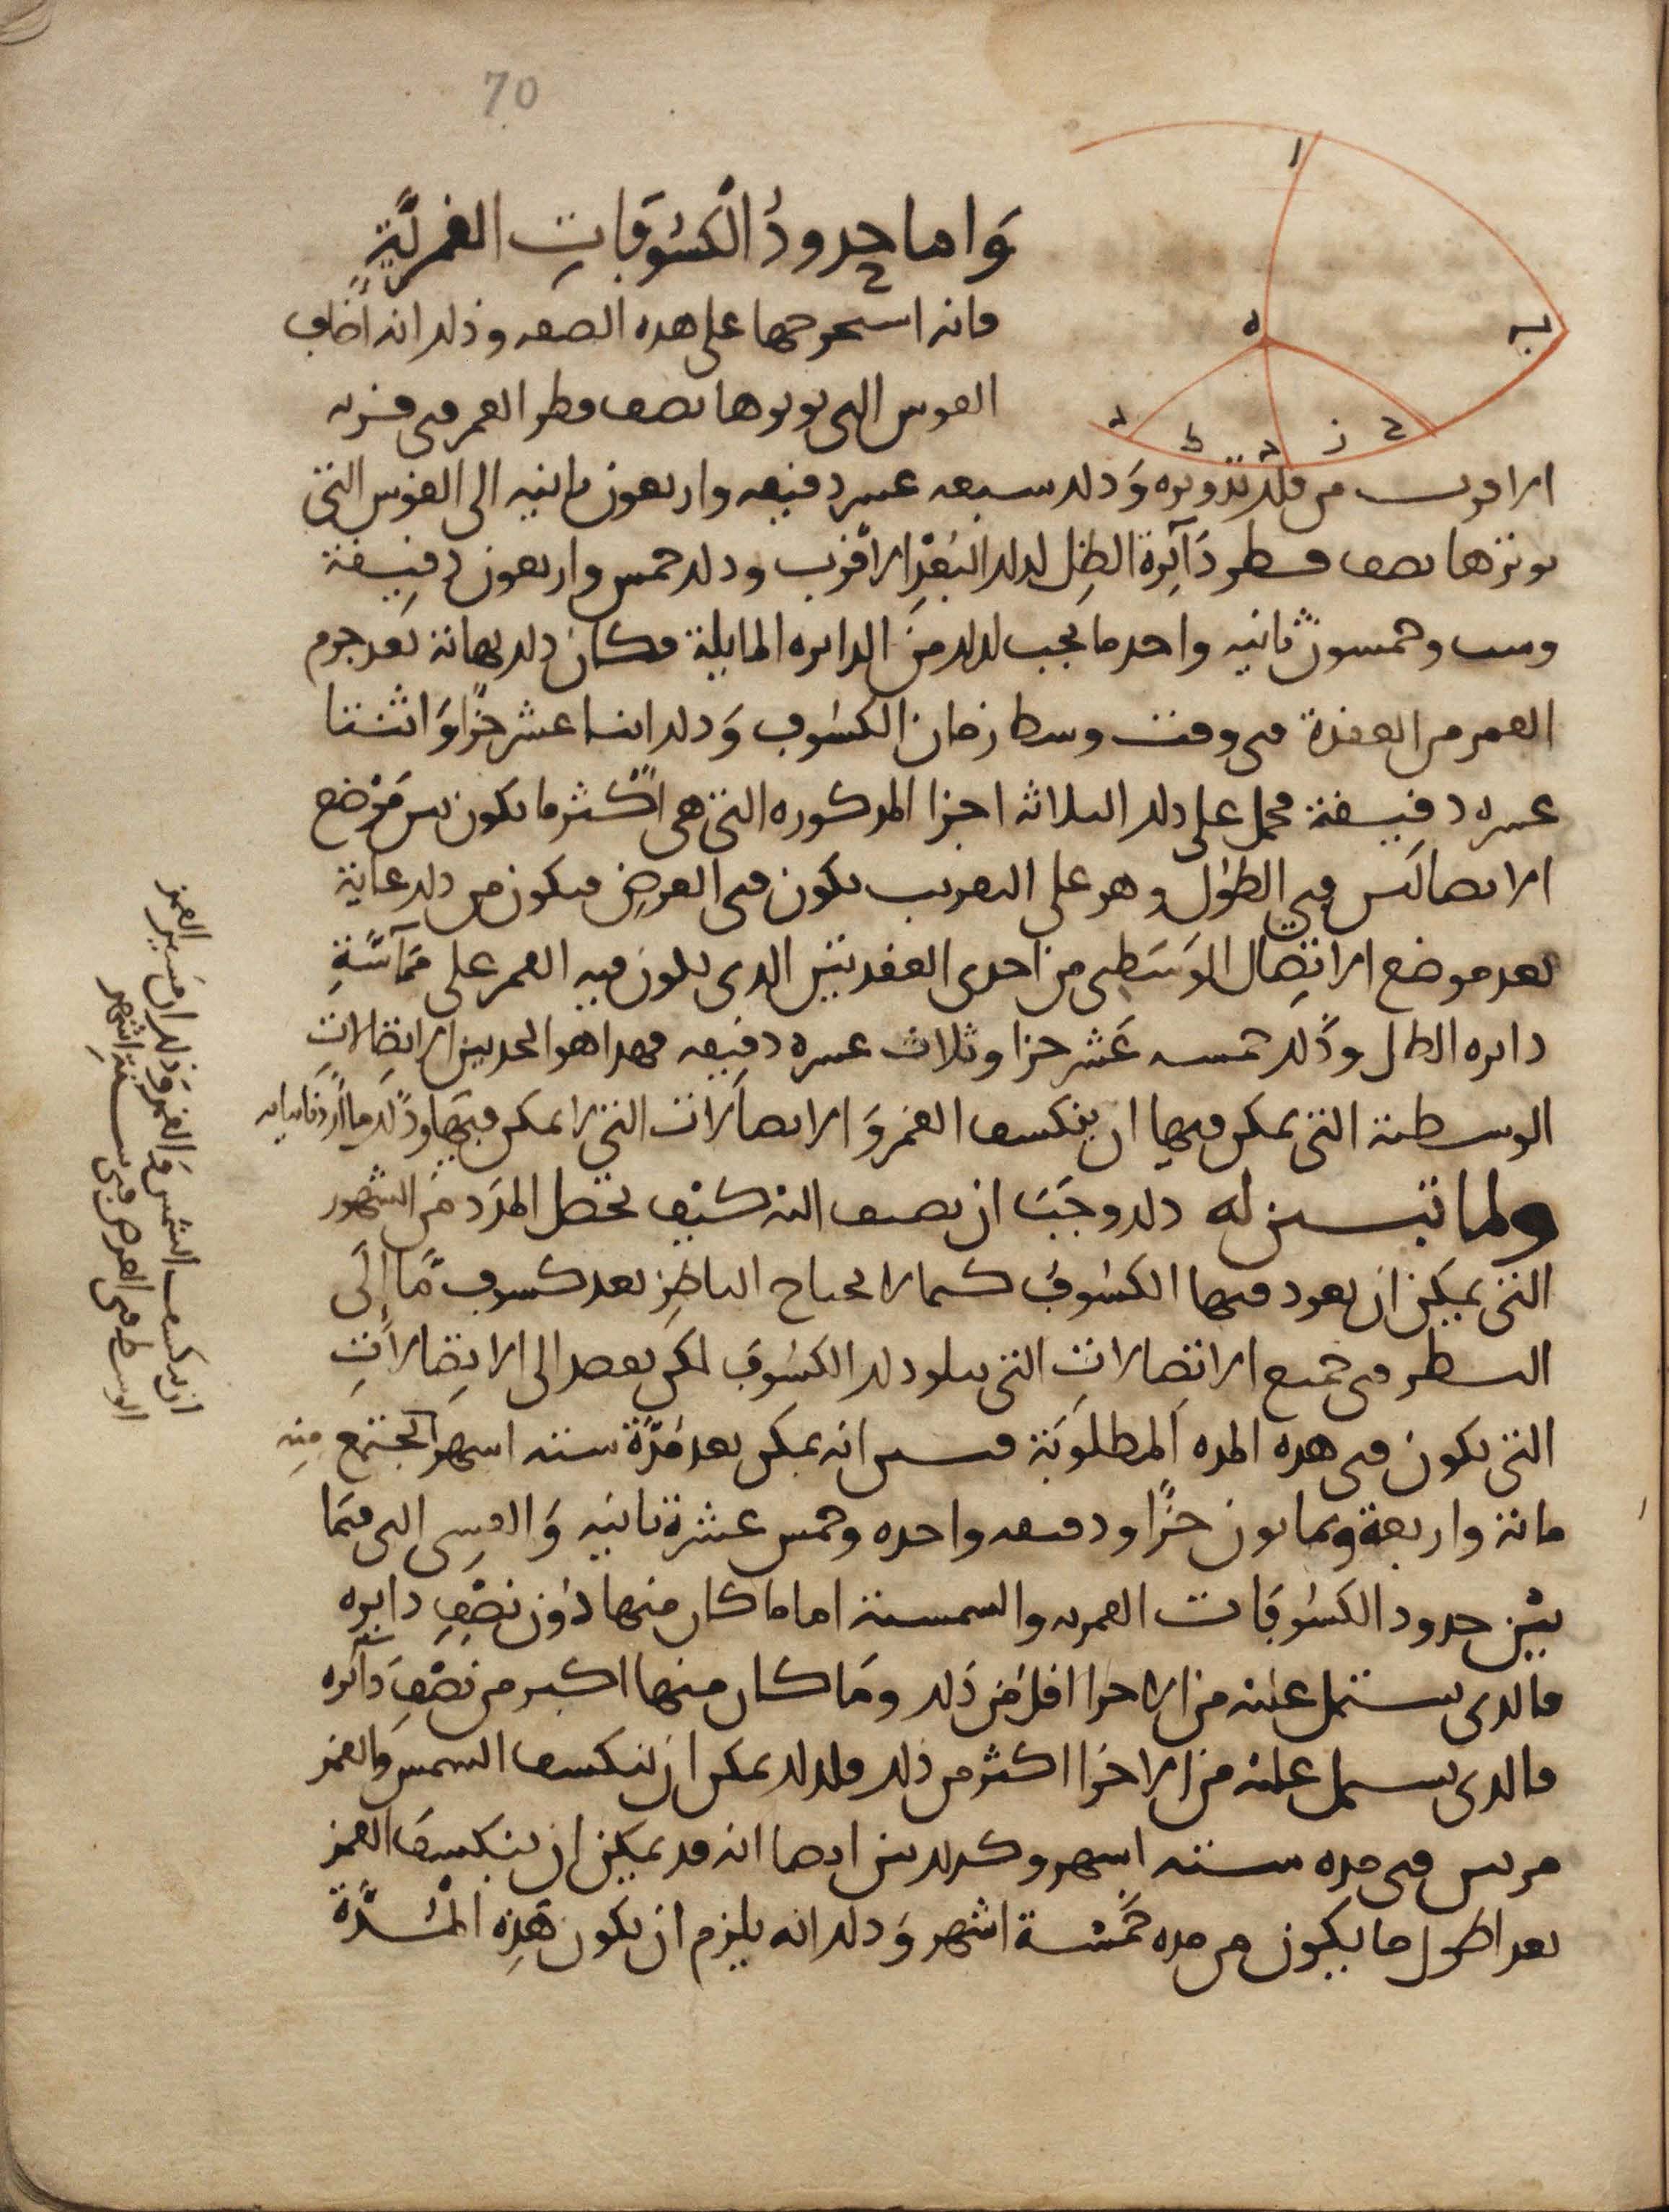 70
ا
ه
ب
د
ط
ج
ز
ح
وَاما حدودُ الْكسُوفَاتِ القمريَّةِ
فانه استخرجها على هذه الصفه وذلك انه اضاف
القوس التى يوترها نصف قطر القمر فى قربه
الاقرب من فلك تدويره وَذلك سبعه عشر دقيقه واربعون ثانيه الى القوس التى
يوترها نصف قطر دَآئِرة الظِل لذلك البُعْدِ الاقرب وذلك خمس واربعون دقيقة
وست وخمسون ثانيه واخذ ما يجب لذلك منَ الدايره المايلة فكان ذلك نهاية بُعد جرم
القمر من العقدة فى وقت وسط زمان الكسُوف وَذلك اثنا عشر جزًا وَاثنتا
عشره دقيقة فحمل على ذلك الثلاثة اجزا المذكوره التى هى اكْثر ما يكون بين مَوْضع
الاتصالَين فى الطوُل وهو على التقريب يكون فى العرض فيكون من ذلك غاية
بعد موضع الاتِصَال الوَسَطى من احدى العقدتين الذى يكون فيه القمر على مَمآسَّةِ
دايره الظل وذَلك خمسه عَشر جزا وثلاث عشره دقيقه فهذا هو الحد بين الاتِصَالاتِ
الوسطية التى يمكن فيها ان ينكسف القمر وَالاتصالات التى لا يمكن فيها وذَلك ما اردنا بيانه
ولما تبين له ذلك وجَبَ ان نصف انه كيف تحصل المدَد من الشهور
التى يمكن ان يعود فيها الكسُوف كيما لا يحتاج الناظِر بعد كسوف مَّا إِلَى
النظر فى جميع الاتصالاتِ التى تتلو ذلك الكسُوف لكن يقصد الى الاتِصَالاتِ
التى تكون فى هذه المده المَطلوُبَة فبين انه يمكن بعد مُدَّة ستة اشهر المجتمع منه
مائة واربعة وثمانون جزًا ودقيقه واحده وخمس عشرة ثانيَه وَالقِسِى التى فيَما
بيْن حدود الكسُوفات القمريه والشمسية اما ما كان منها دُون نصْفِ دايره
فالذى يشتمل عليه من الاجزا اقل من ذَلك ومَا كان منها اكبر من نصْفِ دَآئره
فالذى يشتمل عليه من الاجزا اكثر من ذلك فلذلك يمكن ان تنكسف الشمس والقمر
مرتين فى مده ستة اشهر وكذلك بين ايضا انه قد يمكن ان ينكسف القمر
بعد اطول ما يكون من مده خَمْسة اشهر وَذلك انه يلزم ان يكون هَذِه المُدَّة
ان ينكسف الشمس وَالقمر وَذلك ان مَسير القمر
الوسط فى العرض فى ستة اشهر